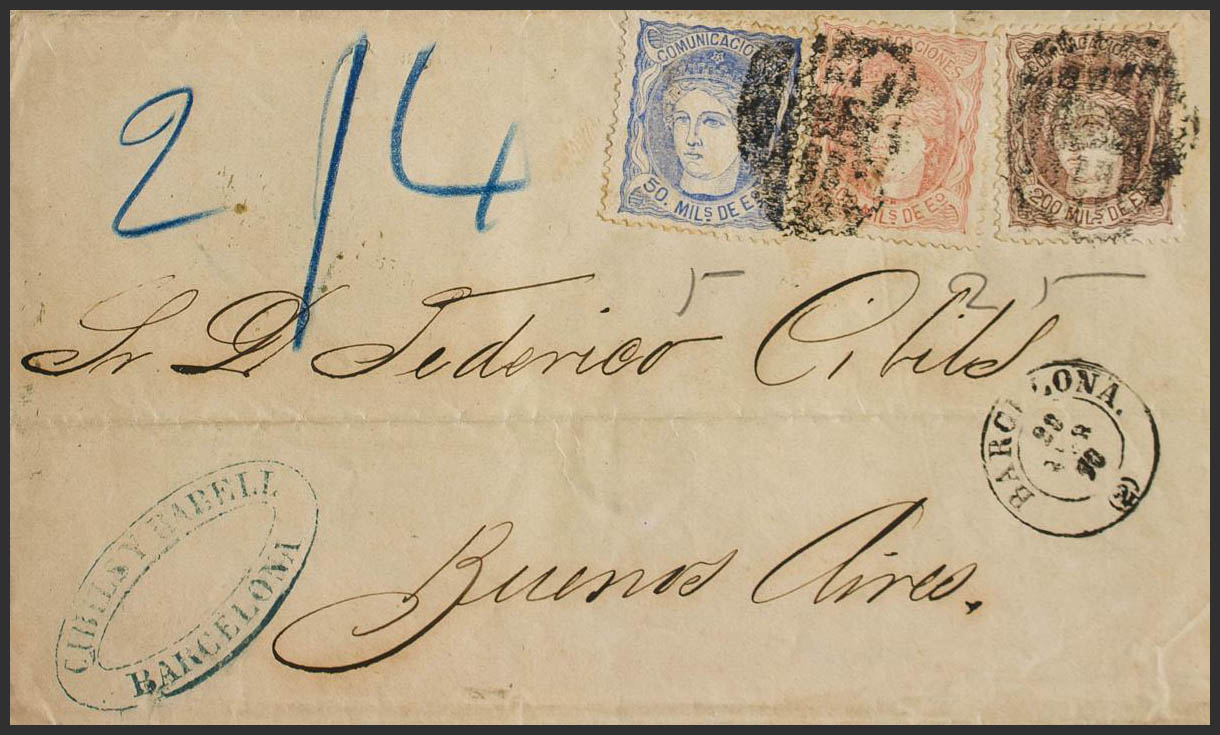 2/4
COMUNICACIONES
50. MILS DE Eº
COMUNICACIONES
MILS DE Eº
COMUNICACIONES
200 MILS DE Eº
5 25
Sr D Federico Cibils
BARCELONA.
70
(2)
CIBILS Y
BARCELONA
Buenos Aires.